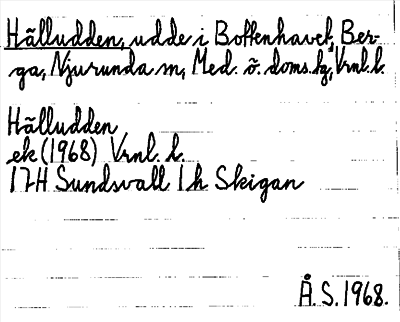 Hälludden, udde i Bottenhavet, Ber-
ga, Njurunda sn, Med. ö. doms. hg, Vrnl. l.
Hälludden
ek (1968) Vrnl. l.
17H Sundsvall 1h Skigan
Å. S. 1968.